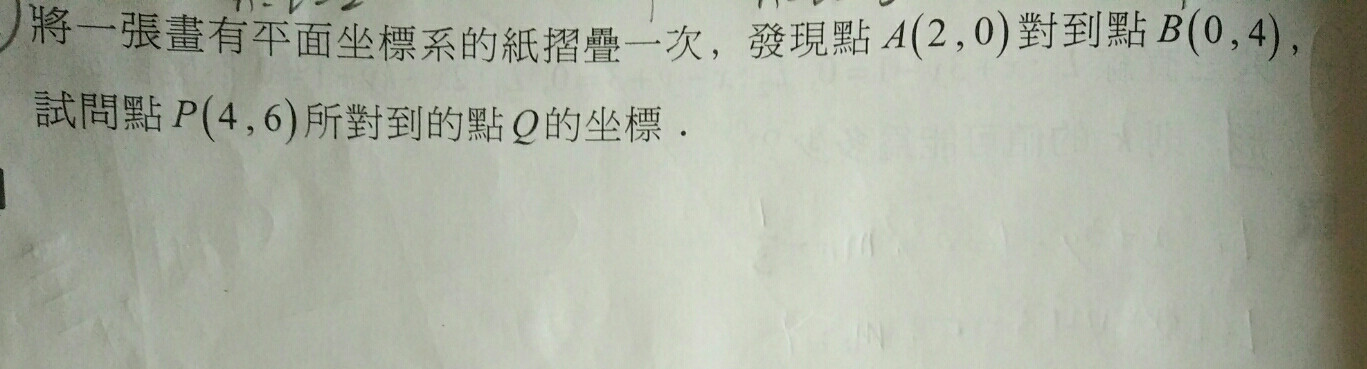 將一張畫有平面坐標系的紙摺疊一次，發現點 A(2,0)對到點 B(0,4)，
試問點 P(4,6)所對到的點Q的坐標．